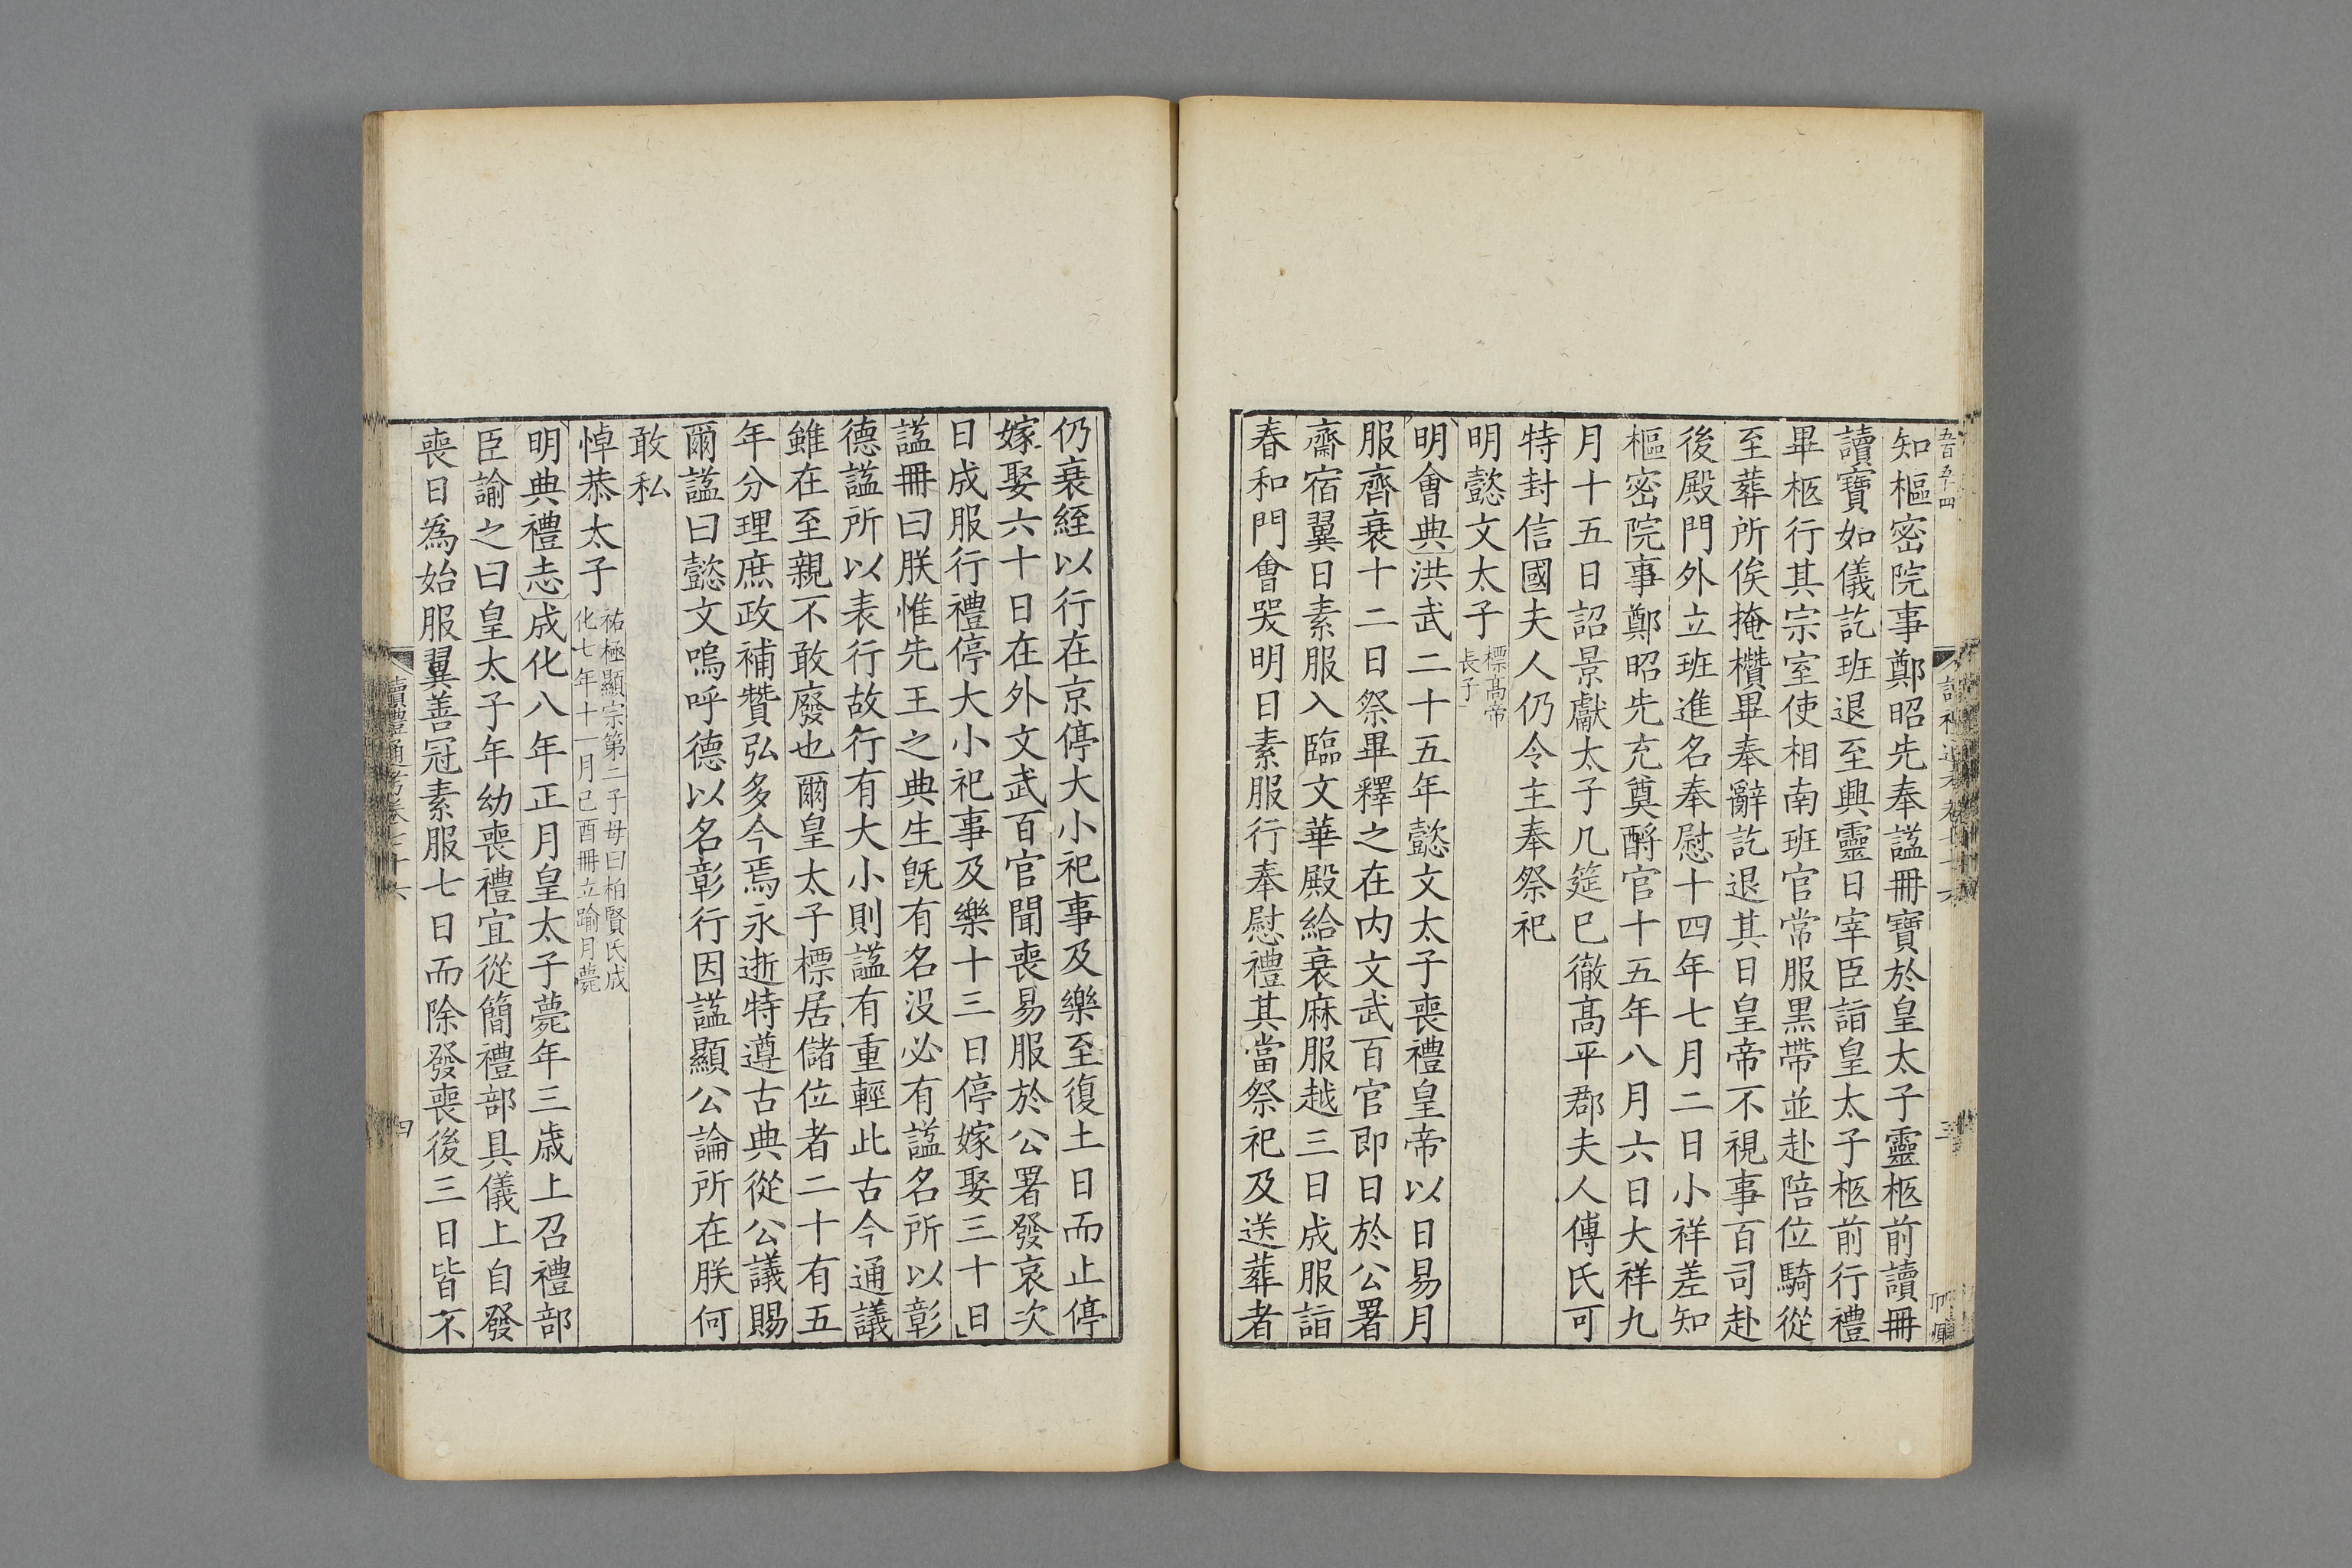 五百五十四
知樞密院事鄭昭先奉謚冊寶於皇太子靈柩前讀冊
讀寶如儀訖班退至興靈日宰臣詣皇太子柩前行禮
畢柩行其宗室使相南班官常服黑帶並赴陪位騎從
至葬所俟掩欑畢奉辭訖退其日皇帝不視事百司赴
後殿門外立班進名奉慰十四年七月二日小祥差知
樞密院事鄭昭先充奠酹官十五年八月六日大祥九
月十五日詔景獻太子几筵巳徹髙平郡夫人傅氏可
特封信國夫人仍令主奉祭祀
明懿文太子標髙帝
長子
明會典洪武二十五年懿文太子喪禮皇帝以日易月
服齊衰十二日祭畢釋之在内文武百官即日於公署
齋宿翼日素服入臨文華殿給衰麻服越三日成服詣
春和門會哭明日素服行奉慰禮其當祭祀及送葬者
仍衰絰以行在京停大小祀事及樂至復土日而止停
嫁娶六十日在外文武百官聞喪易服於公署發哀次
日成服行禮停大小祀事及樂十三日停嫁娶三十日
謚冊曰朕惟先王之典生旣有名没必有謚名所以彰
德謚所以表行故行有大小則謚有重輕此古今通議
雖在至親不敢廢也爾皇太子標居儲位者二十有五
年分理庶政補贊弘多今焉永逝特遵古典從公議賜
爾謚曰懿文嗚呼德以名彰行因謚顯公論所在朕何
敢私
悼恭太子祐極顯宗第二子母曰柏賢氏成
化七年十一月己酉冊立踰月薨
明典禮志成化八年正月皇太子薨年三歳上召禮部
臣諭之曰皇太子年幼喪禮宜從簡禮部具儀上自發
喪日為始服翼善冠素服七日而除發喪後三日皆不
讀禮通考卷七十六
四